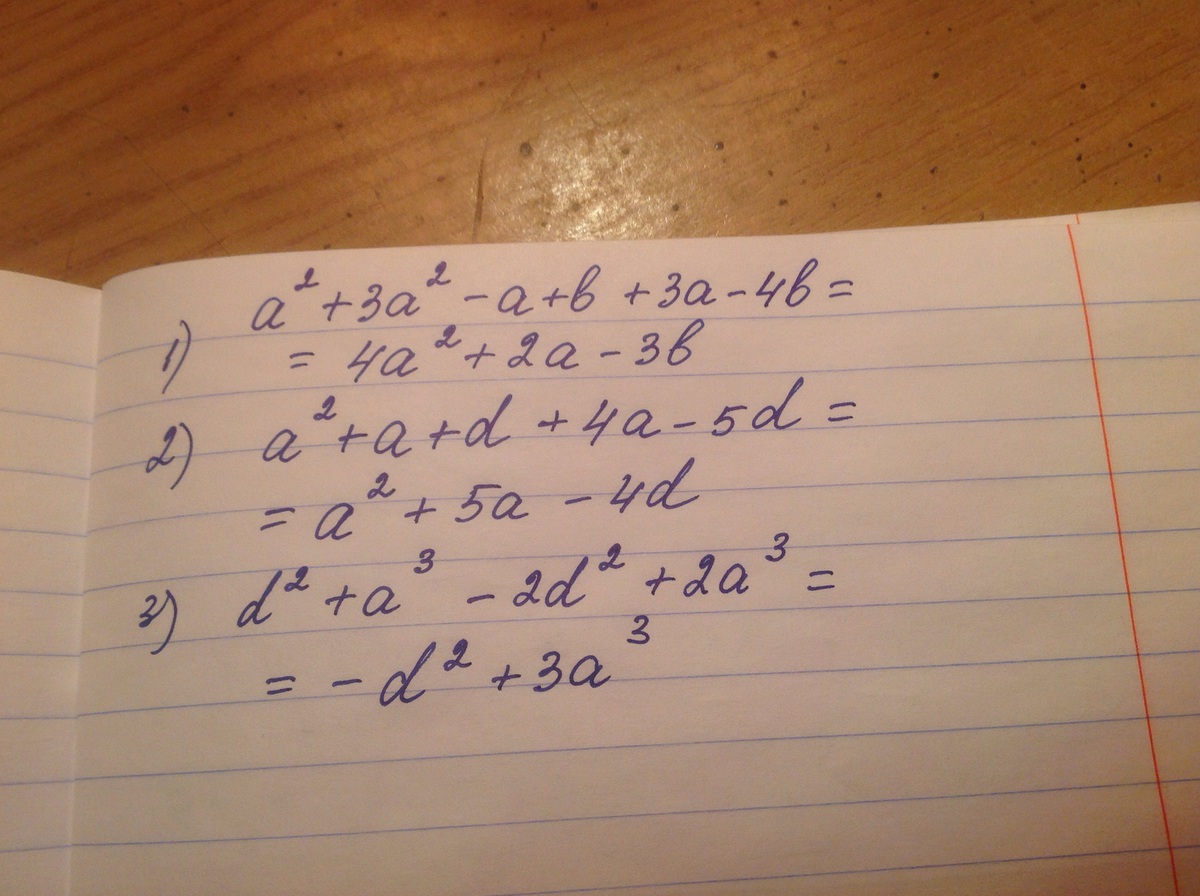 1) a² + 3a² - a + b + 3a - 4b =
= 4a² + 2a - 3b
2) a² + a + d + 4a - 5d =
= a² + 5a - 4d
3) d² + a³ - 2d² + 2a³ =
= - d² + 3a³